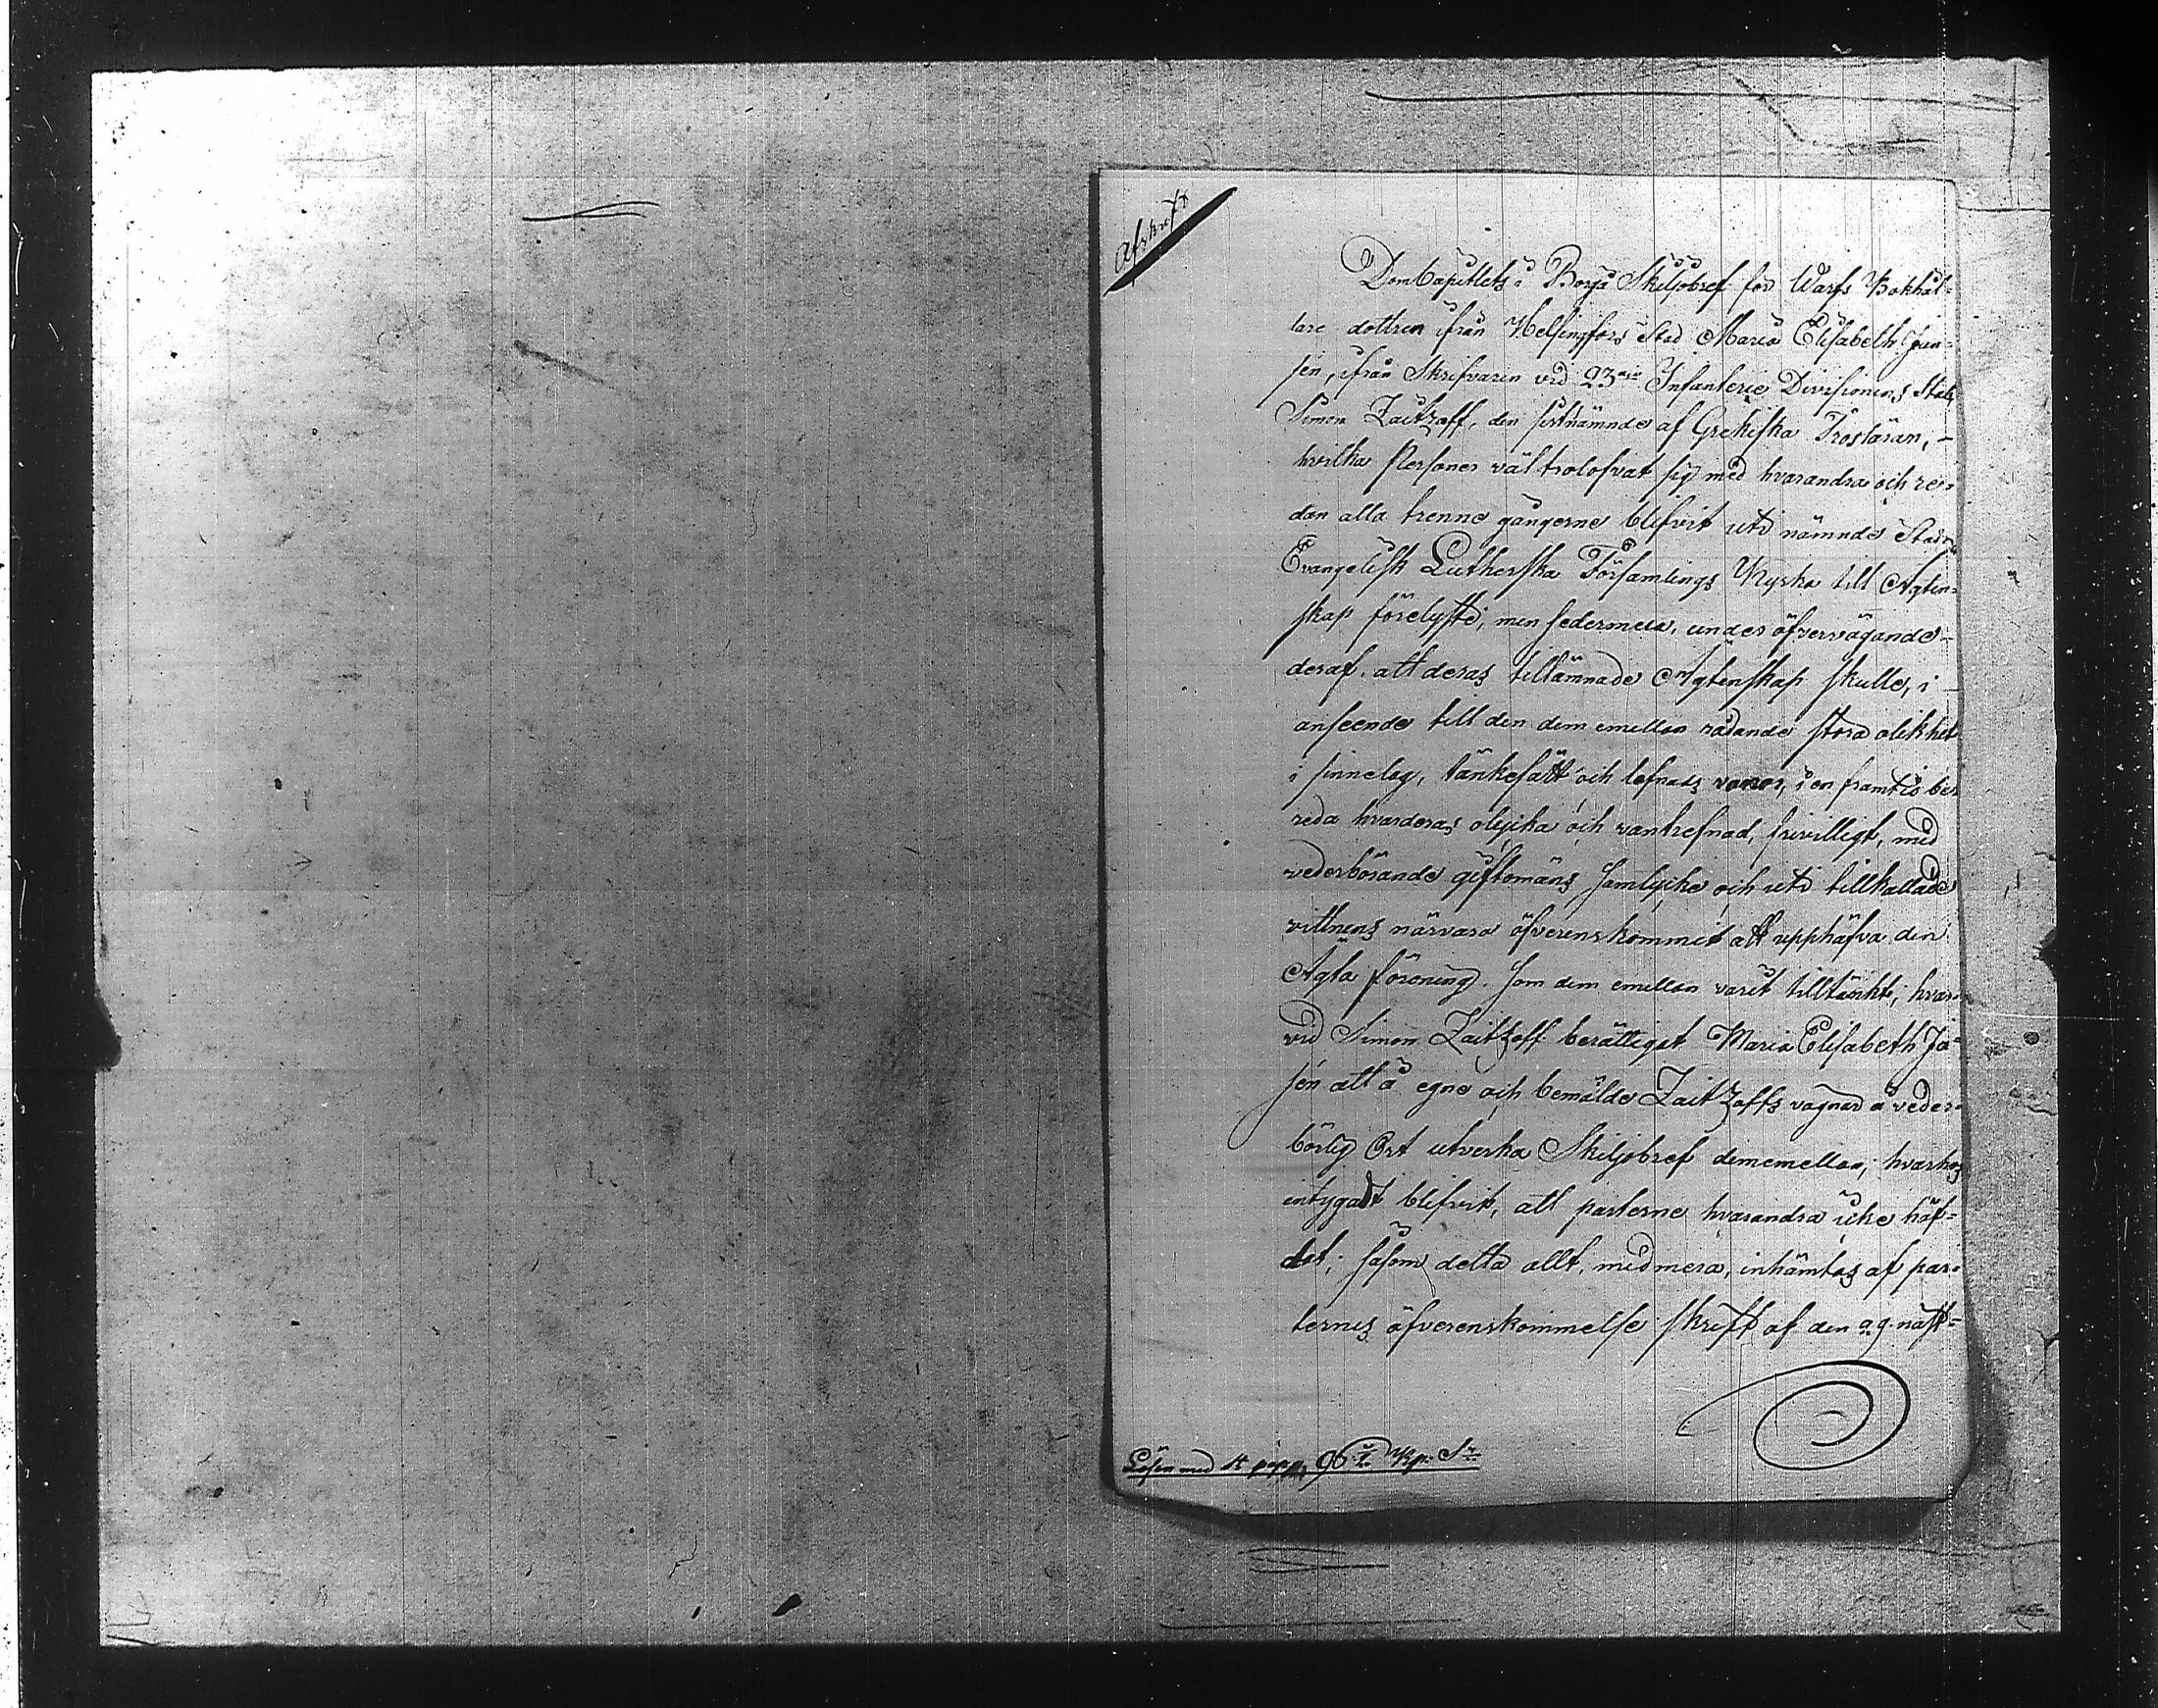 Afskrift
DomCapitlets i Borgå Skiljobref för Warfs Bokhål=
lare dottren ifrån Helsingfors Stad Maria Elisabeth Jan=
sén, ifrån Skrifvaren vid 23dje Infanterie Divisionens Stab
Simon Zaitzoff, den sistnämnde af Grekiska Trosläran, -
hvilka Personer väl trolofvat sig med hvarandra och re=
dan alla trenne gångerne blifvit uti nämnde Stads
Evangelisk Lutherska Församlings Kyrka till Ägten=
skap förelyste, men sedermera, under öfvervägande -
deraf, att deras tillämnade Ägtenskap skulle, i -
anseende till den dem emellan rådande stora olikhet
i sinnelag, tänkesätt och lefnads vanor, i en framtid be=
reda hvarderas olycka och vantrefnad, frivilligt, med
vederbörande giftomäns samtycke och uti tillkallade
vittnens närvaro öfverenskommit att upphäfva den
Ägta förening som dem emellan varit tilltänkt; hvar=
vid Simon Zaitzoff berättigat Maria Elisabeth Jan=
sén att å egne och bemälde Zaitzoffs vägnar å veder=
börlig Ort utverka Skiljobref dememellan; hvarhos
intygadt blifvit, att parterne hvarandra icke häf=
dat; såsom detta allt, med mera, inhämtas af par=
ternes öfverenskommelse skrift af den 29 näst=
Lösen med St papp. 96 1/2 Kp. Sr